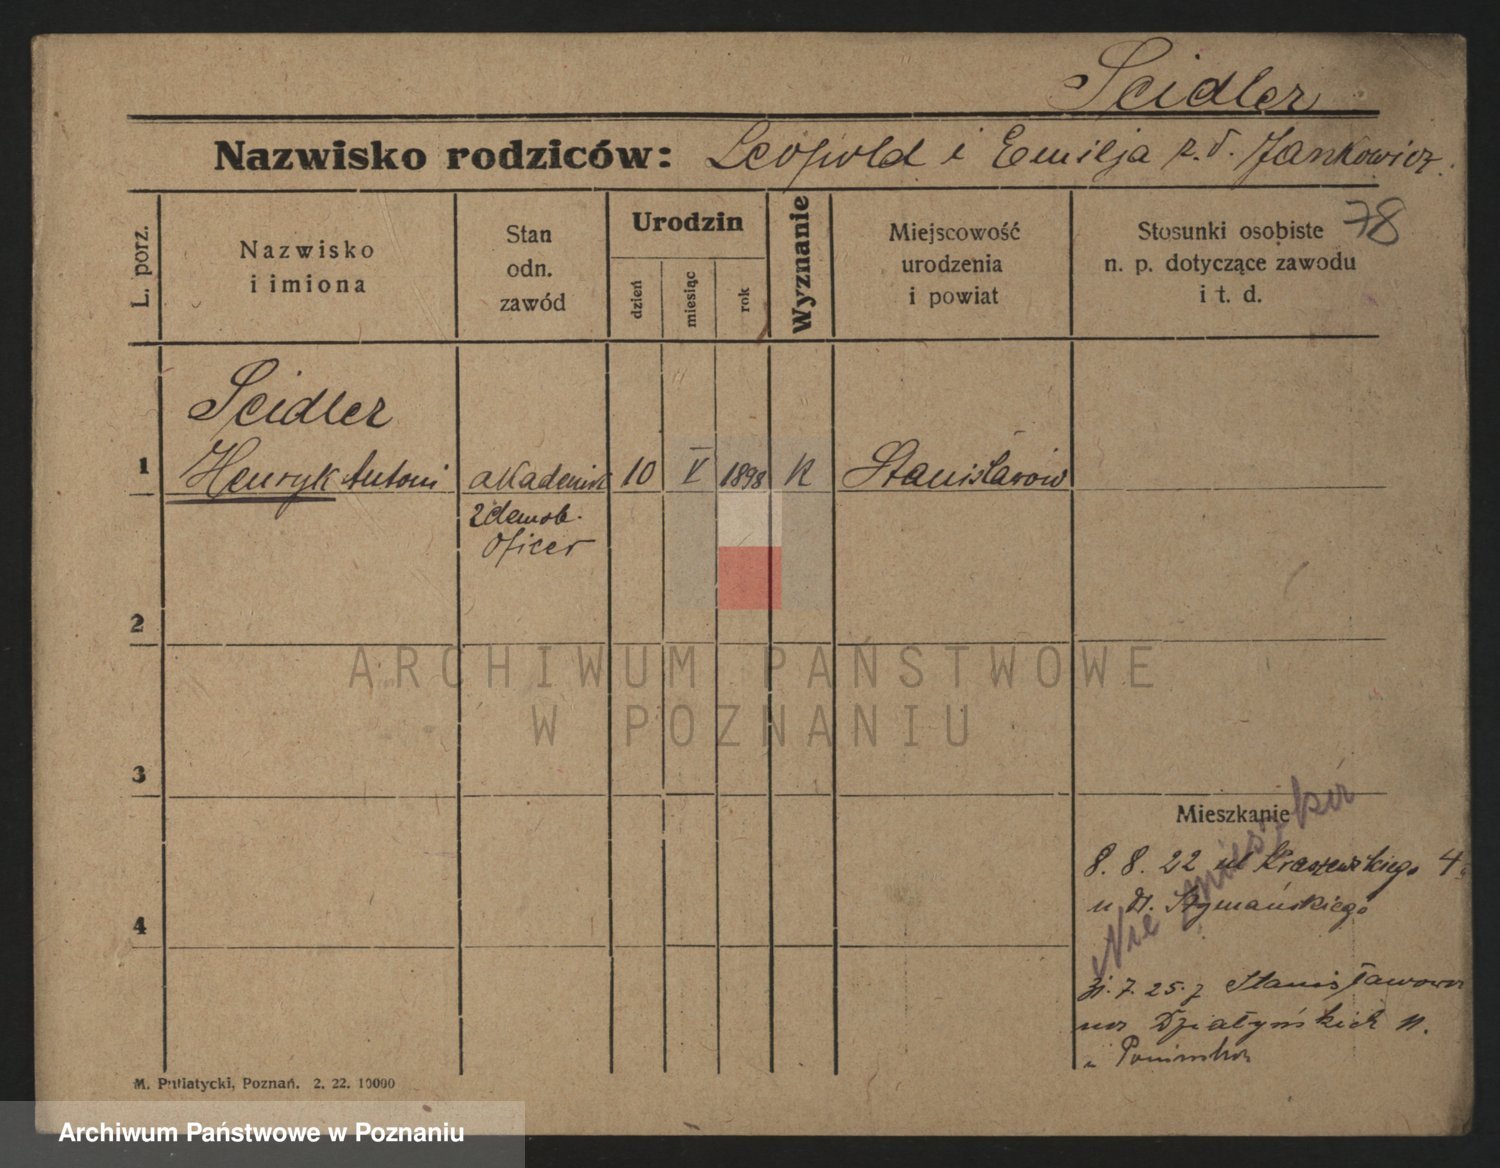 Seidler
Nazwisko rodziców: Leopold i Emilja z.d. Jankowicz.
L. porz.
Nazwisko
i imiona
Stan
odn.
zawód
Urodzin
dzień
miesiąc
rok
Wyznanie
Miejscowość
urodzenia
i powiat
Stosunki osobiste
n. p. dotyczące zawodu
i t. d.
78
Seidler
1 Henryk Antoni akademik 10 V 1898 K Stanisławów
zdemob.
Oficer
2
ARCHIWUM PAŃSTWOWE
W POZNANIU
3
Mieszkanie
8. 8. 22 ul Kraszewskiego 4
u Szymańskiego
Nie mieszka
7. 25. z Stanisławowa
na Działyńskich 11.
4
M. Putiatycki, Poznań. 2. 22. 10000
Archiwum Państwowe w Poznaniu